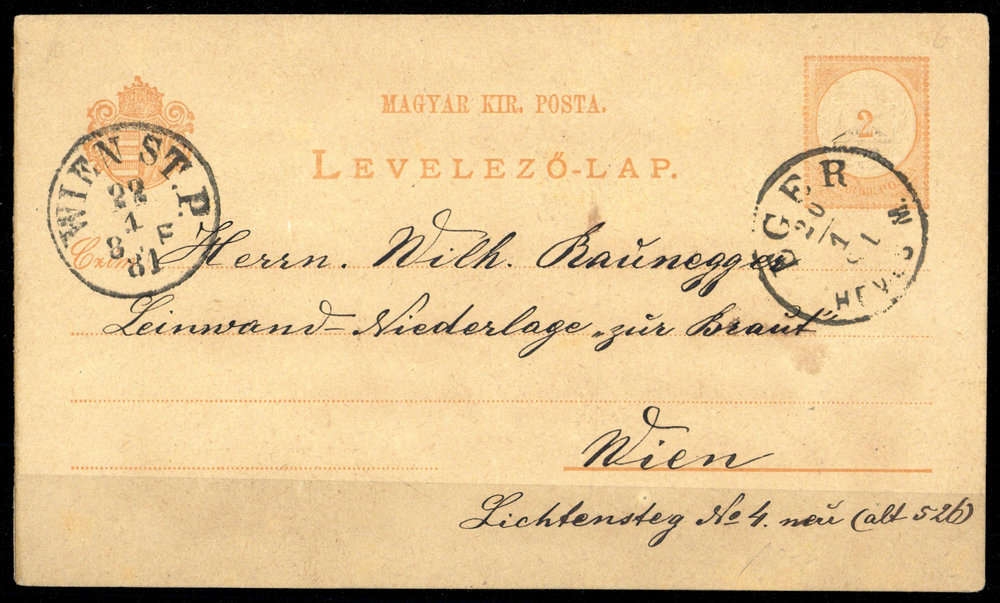 MAGYAR KIR. POSTA.
LEVELEZŐ-LAP.
2
WIEN ST. P.
22
1
8 F
81
EGER
HEVES M.
20
1
81
Herrn. Wilh. Raunegger
Leinwand-Niederlage „zur Braut“
Wien
Lichtensteg No 4. neu (alt 526)